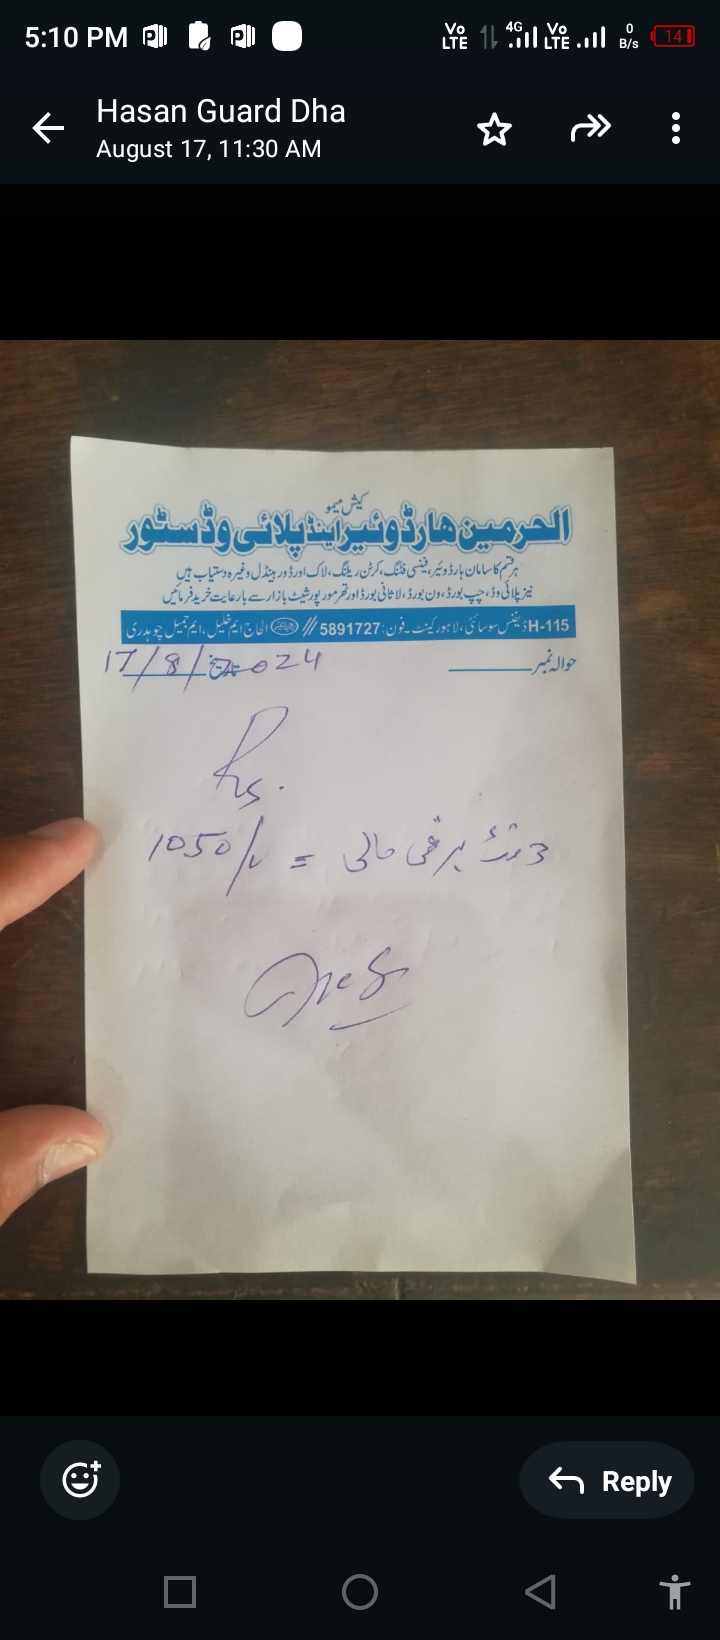 5:10 PM
Vo LTE 4G Vo LTE 0 B/s 14
Hasan Guard Dha
August 17, 11:30 AM
کیش میمو
الحرمین ھارڈوئیر اینڈ پلائی وڈ سٹور
ہر قسم کا سامان ہارڈوئیر، فینسی فٹنگ، کرٹن ریلنگ، لاک اور ڈور ہینڈل وغیرہ دستیاب ہیں
نیز پلائی وڈ، چپ بورڈ، ون بورڈ، لاثانی بورڈ اور تھرمور پور شیٹ بازار سے بارعایت خرید فرمائیں
H-115 ڈیفنس سوسائٹی، لاہور کینٹ۔ فون: 5891727 // الحاج ایم خلیل، ایم جمیل چوہدری
حوالہ نمبر تاریخ 17/8/2024
Rs.
1050/ =
Reply